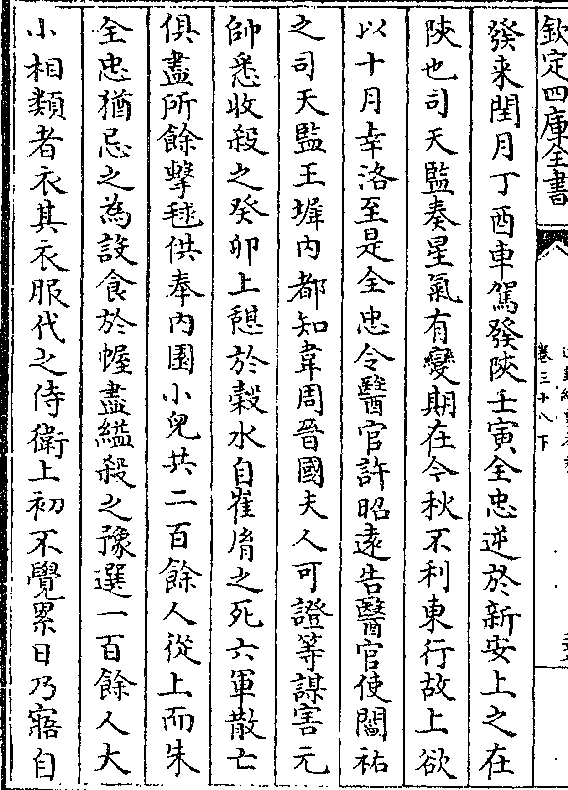 欽定四庫全書
卷三十八下
發来閏月丁酉車駕發陜壬寅全忠逆於新安上之在
陜也司天監奏星氣有變期在今秋不利東行故上欲
以十月幸洛至是全忠令醫官許昭逺告醫官使閻祐
之司天監王墀内都知韋周晉國夫人可證等謀害元
帥悉收殺之癸卯上憇於糓水自崔𦙍之死六軍散亡
俱盡所餘擊毬供奉内園小兒共二百餘人從上而朱
全忠猶忌之為設食於幄盡縊殺之豫選一百餘人大
小相類者衣其衣服代之侍衛上初不覺累日乃寤自